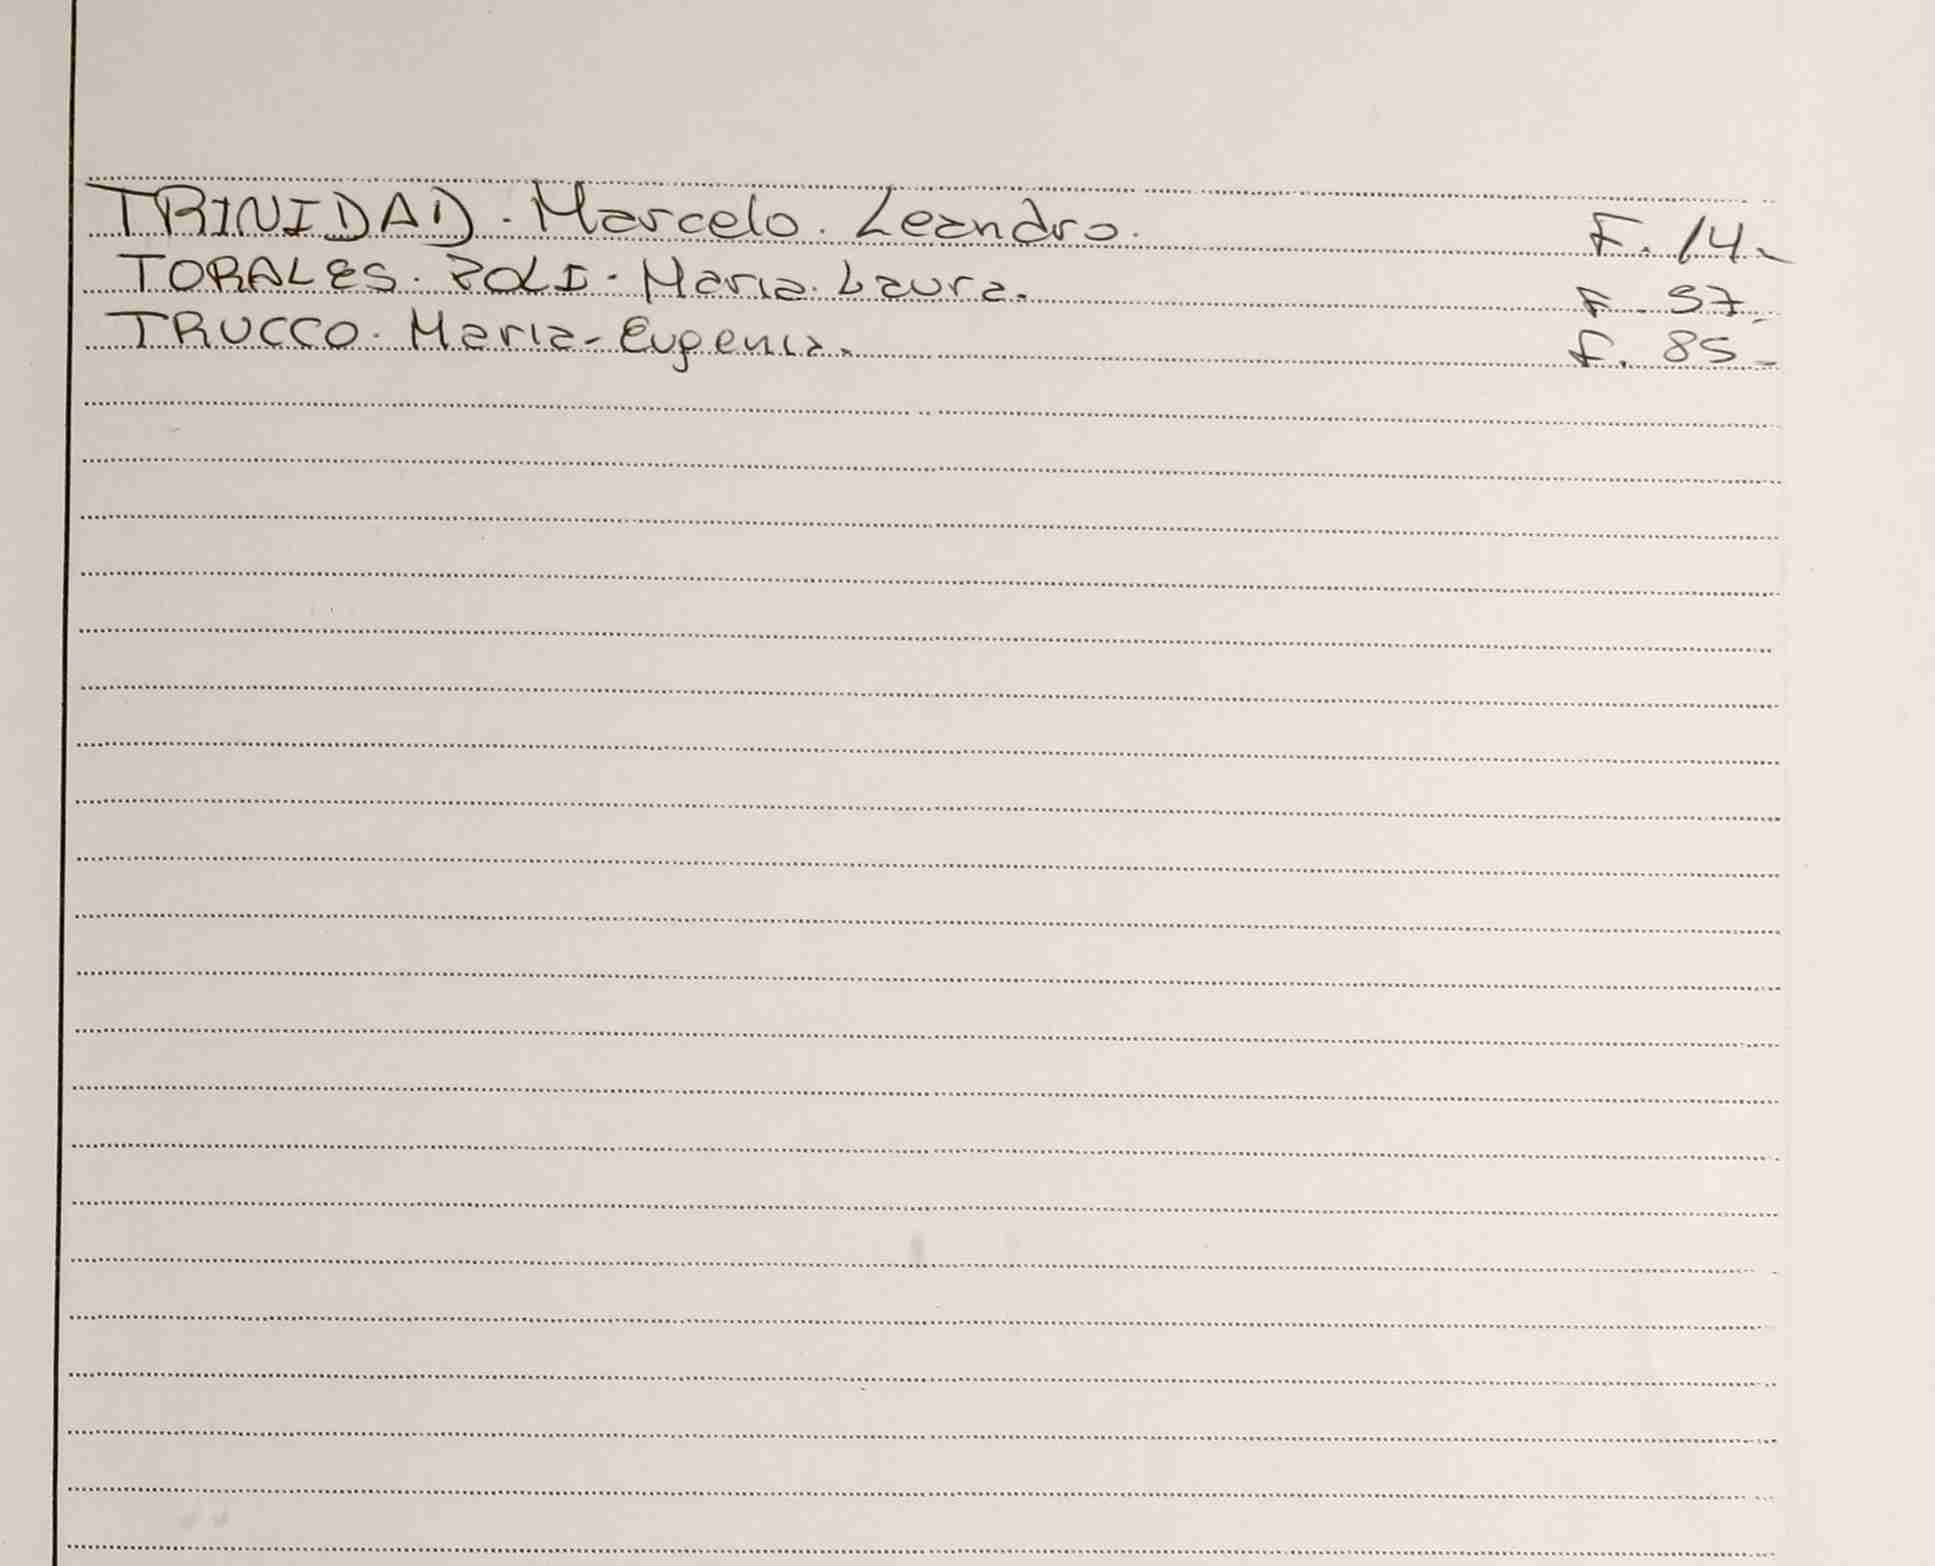 TRINIDAD. Marcelo. Leandro. F. 14.
TORALES. POLI. Maria. Laura. F. 57.
TRUCCO. Maria - Eugenia. F. 85 -